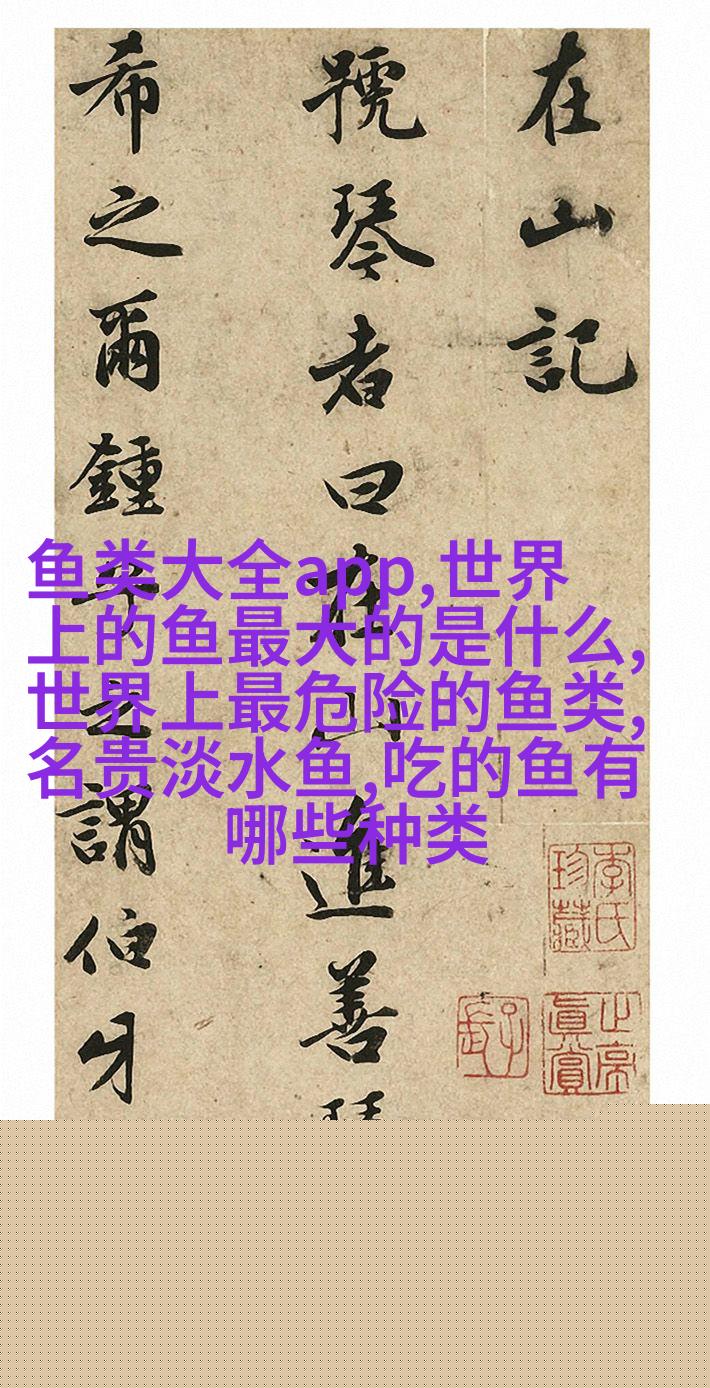 在山記
號琴者曰在山進善
希之爾鍾子之謂伯牙
鱼类大全app,世界
上的鱼最大的是什么,
世界上最危险的鱼类,
名贵淡水鱼,吃的鱼有
哪些种类
季氏珍藏